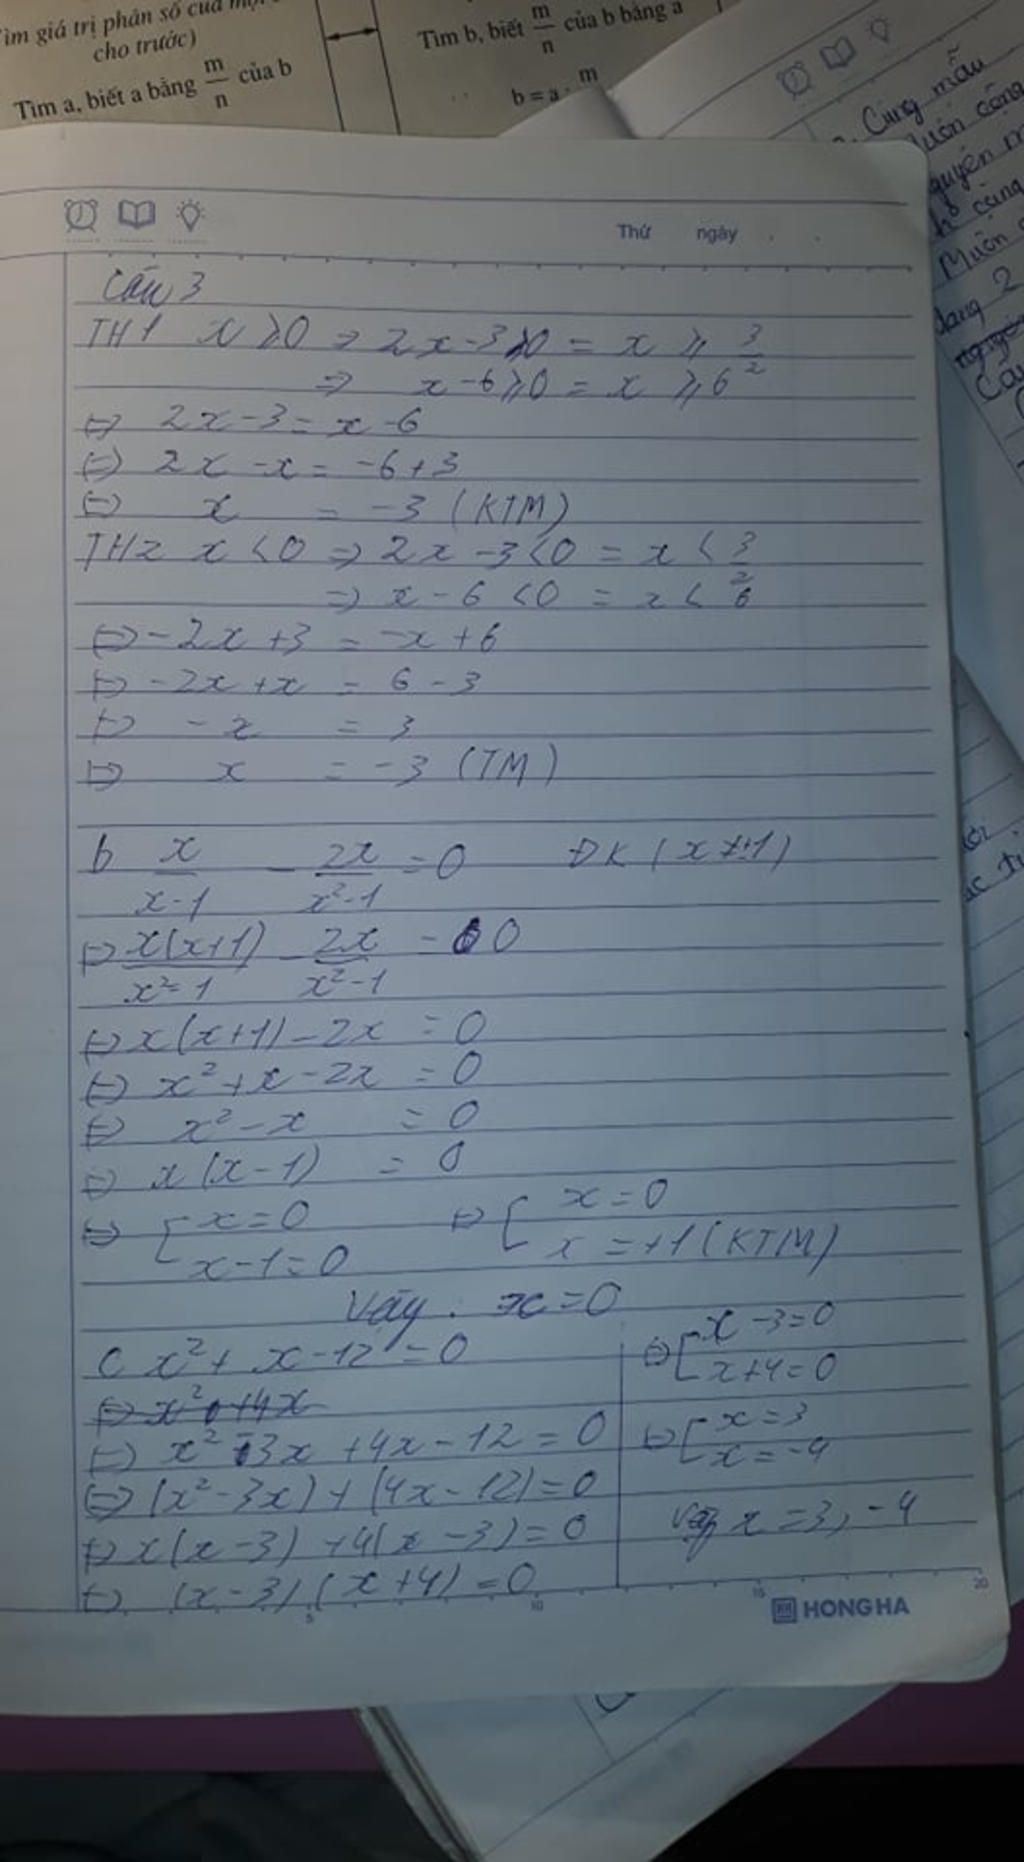 Tìm giá trị phân số của một
cho trước)
Tìm a, biết a bằng m/n của b
Tìm b, biết m/n của b bằng a
b = a : m
Cùng mẫu
Muốn
Thứ ngày
Câu 3
TH1 x ≥ 0 ⇒ 2x - 3 ≥ 0 = x ≥ 3/2
⇒ x - 6 ≥ 0 = x ≥ 6
⇔ 2x - 3 = x - 6
⇔ 2x - x = -6 + 3
⇔ x = -3 (KTM)
TH2 x < 0 ⇒ 2x - 3 < 0 = x < 3/2
⇒ x - 6 < 0 = x < 6
⇔ -2x + 3 = -x + 6
⇔ -2x + x = 6 - 3
⇔ -x = 3
⇔ x = -3 (TM)
b x/(x-1) - 2x/(x²-1) = 0 ĐK (x ≠ ±1)
⇔ x(x+1)/(x²-1) - 2x/(x²-1) = 0
⇔ x(x+1) - 2x = 0
⇔ x² + x - 2x = 0
⇔ x² - x = 0
⇔ x(x-1) = 0
⇔ [ x = 0 ⇔ [ x = 0
x - 1 = 0 x = +1 (KTM)
Vậy . x = 0
c x² + x - 12 = 0
⇔ x² + 4x
⇔ x² - 3x + 4x - 12 = 0
⇔ (x² - 3x) + (4x - 12) = 0
⇔ x(x - 3) + 4(x - 3) = 0
⇔ (x - 3)(x + 4) = 0
⇔ [ x - 3 = 0
x + 4 = 0
⇔ [ x = 3
x = -4
Vậy x = 3, -4
5 10 15 20
HONG HA